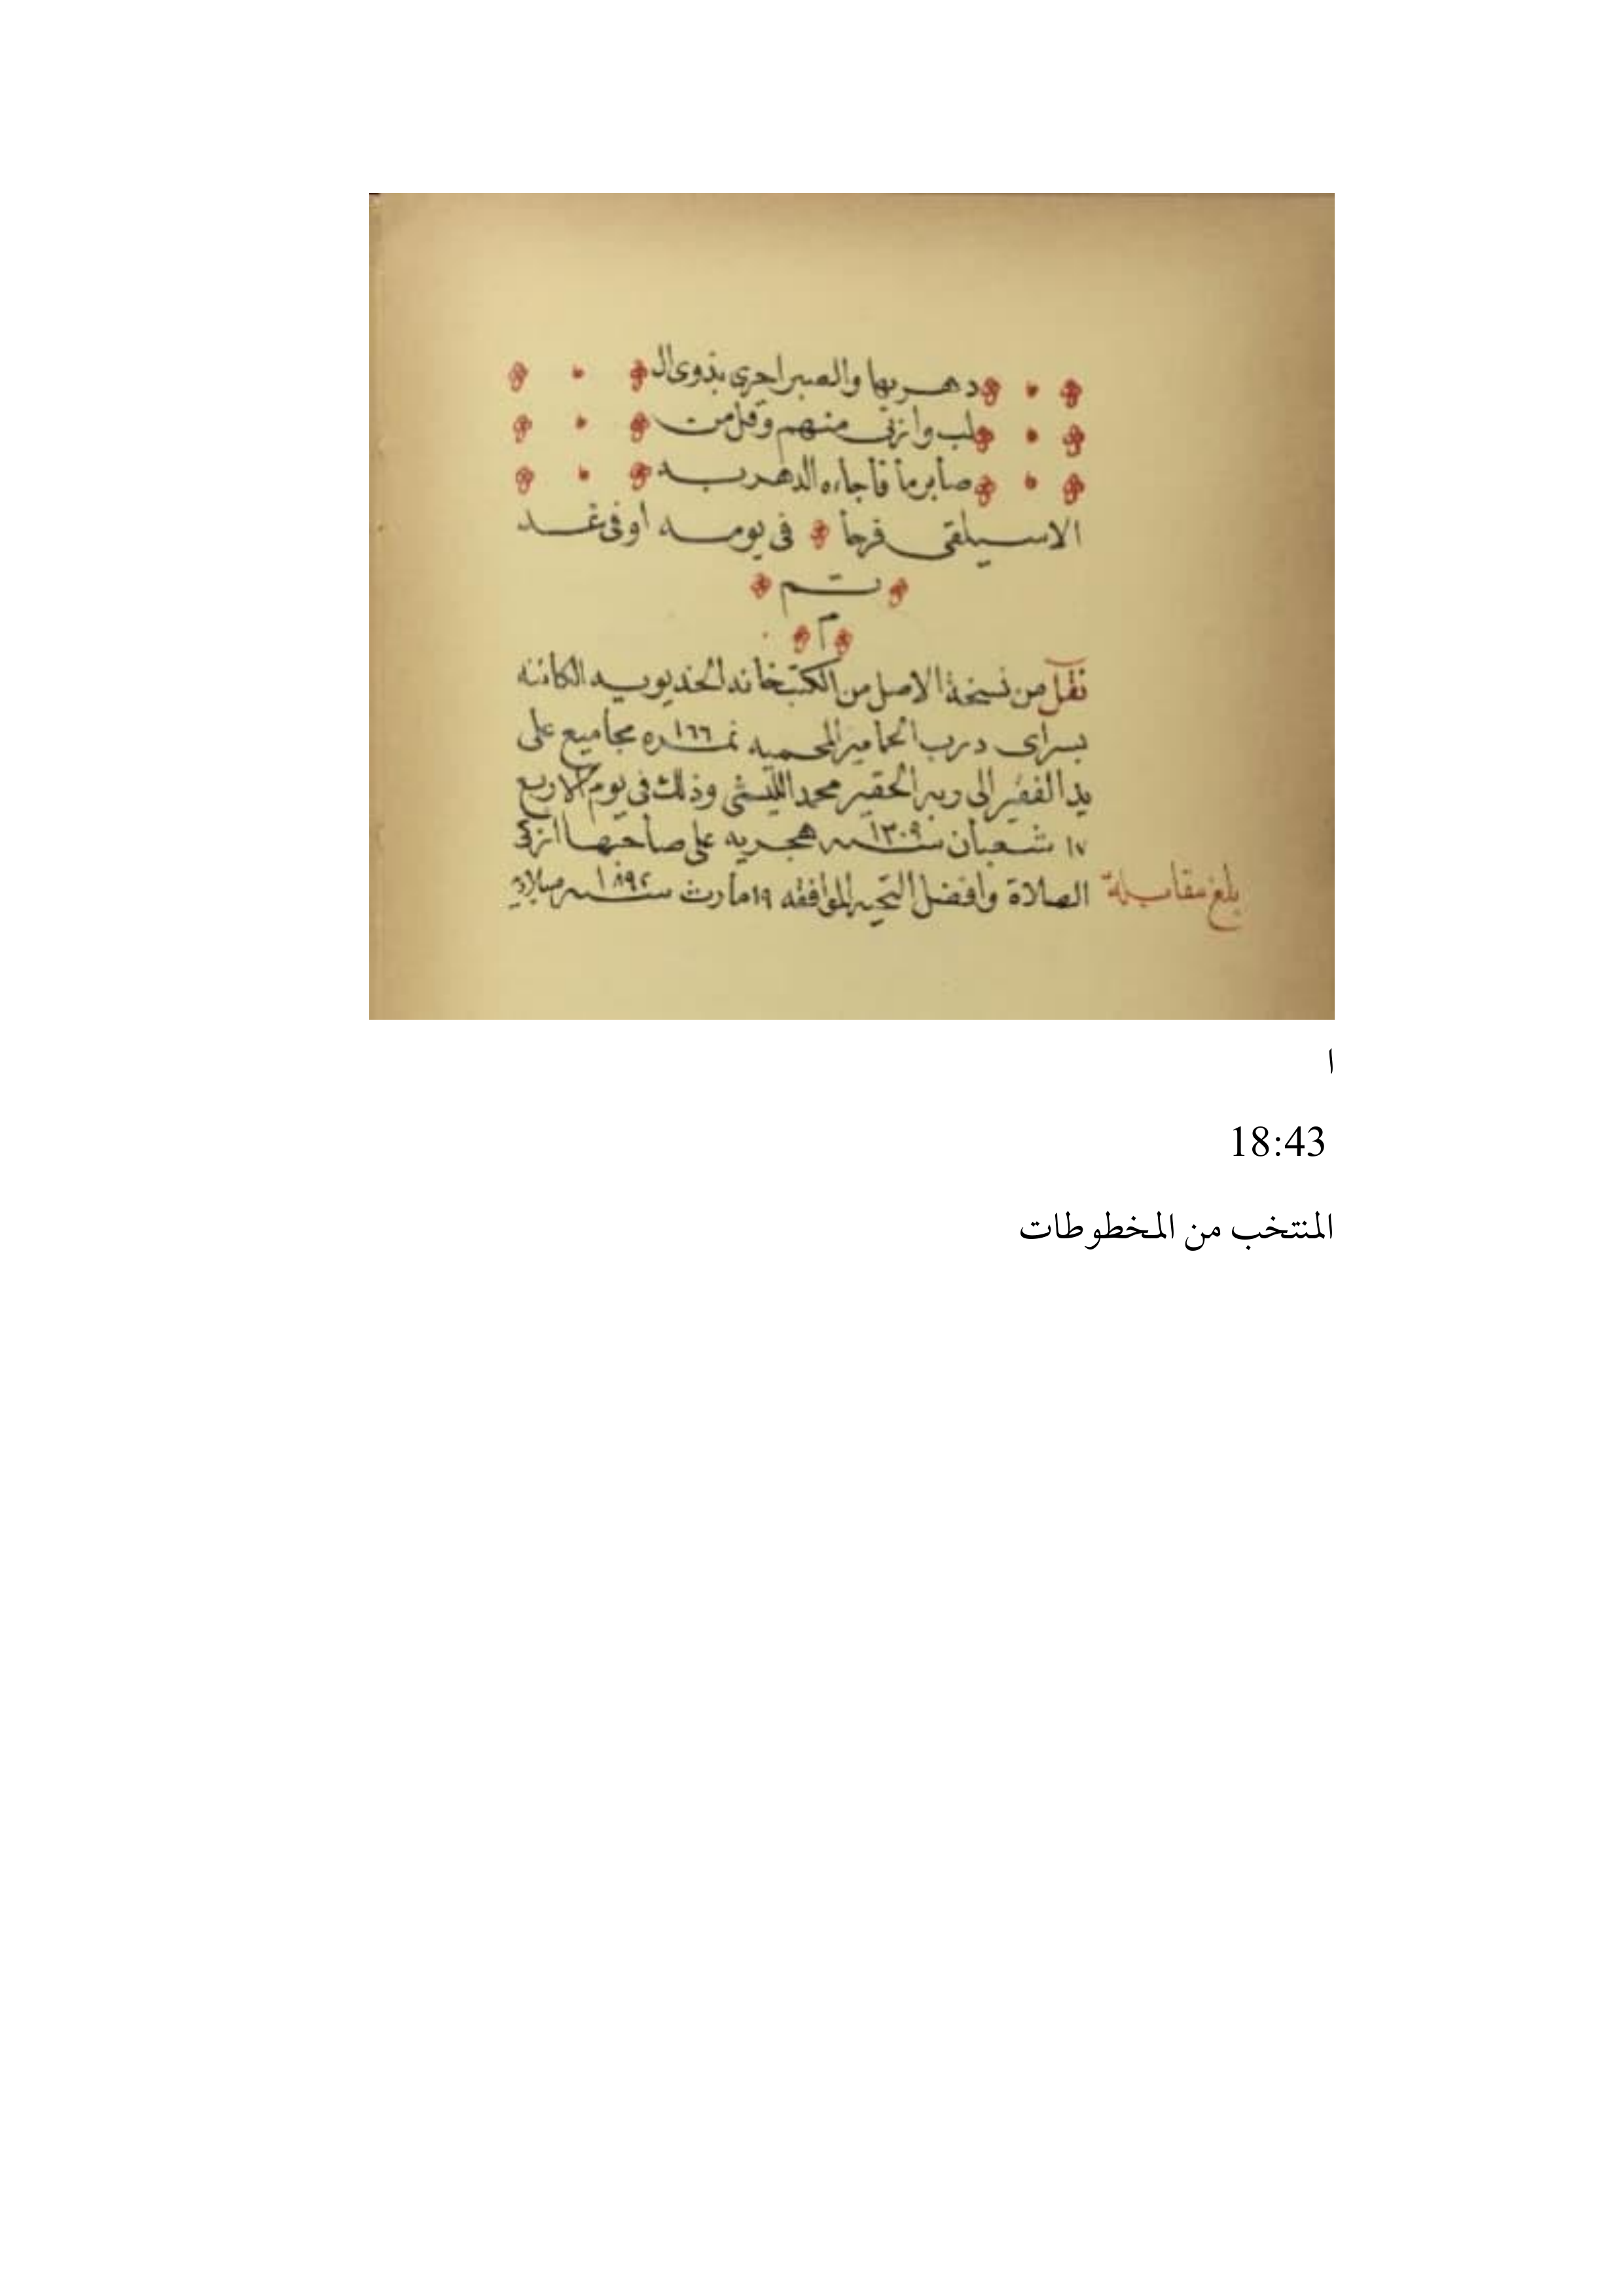 دهر بها والصبر احرى بذوى ال
لب وازنى منهم وقل من
صابر ما فاجاءه الدهر به
الا سيلقى فرجا في يومه او في غد
تم
م
نقل من نسخة الاصل من الكتبخانه الخديويه الكائنه
بسراى درب الجماميز المحميه نمره ١٦٦ مجاميع على
يد الفقير الى ربه الحقير محمد الليثى وذلك فى يوم الاربع
١٧ شعبان سنه ١٣٠٩ هجريه على صاحبها ازكى
الصلاة وافضل التحيه الموافقه ١٩ مارث سنه ١٨٩٢ ميلاديه
بلغ مقابلة
ا
18:43
المنتخب من المخطوطات